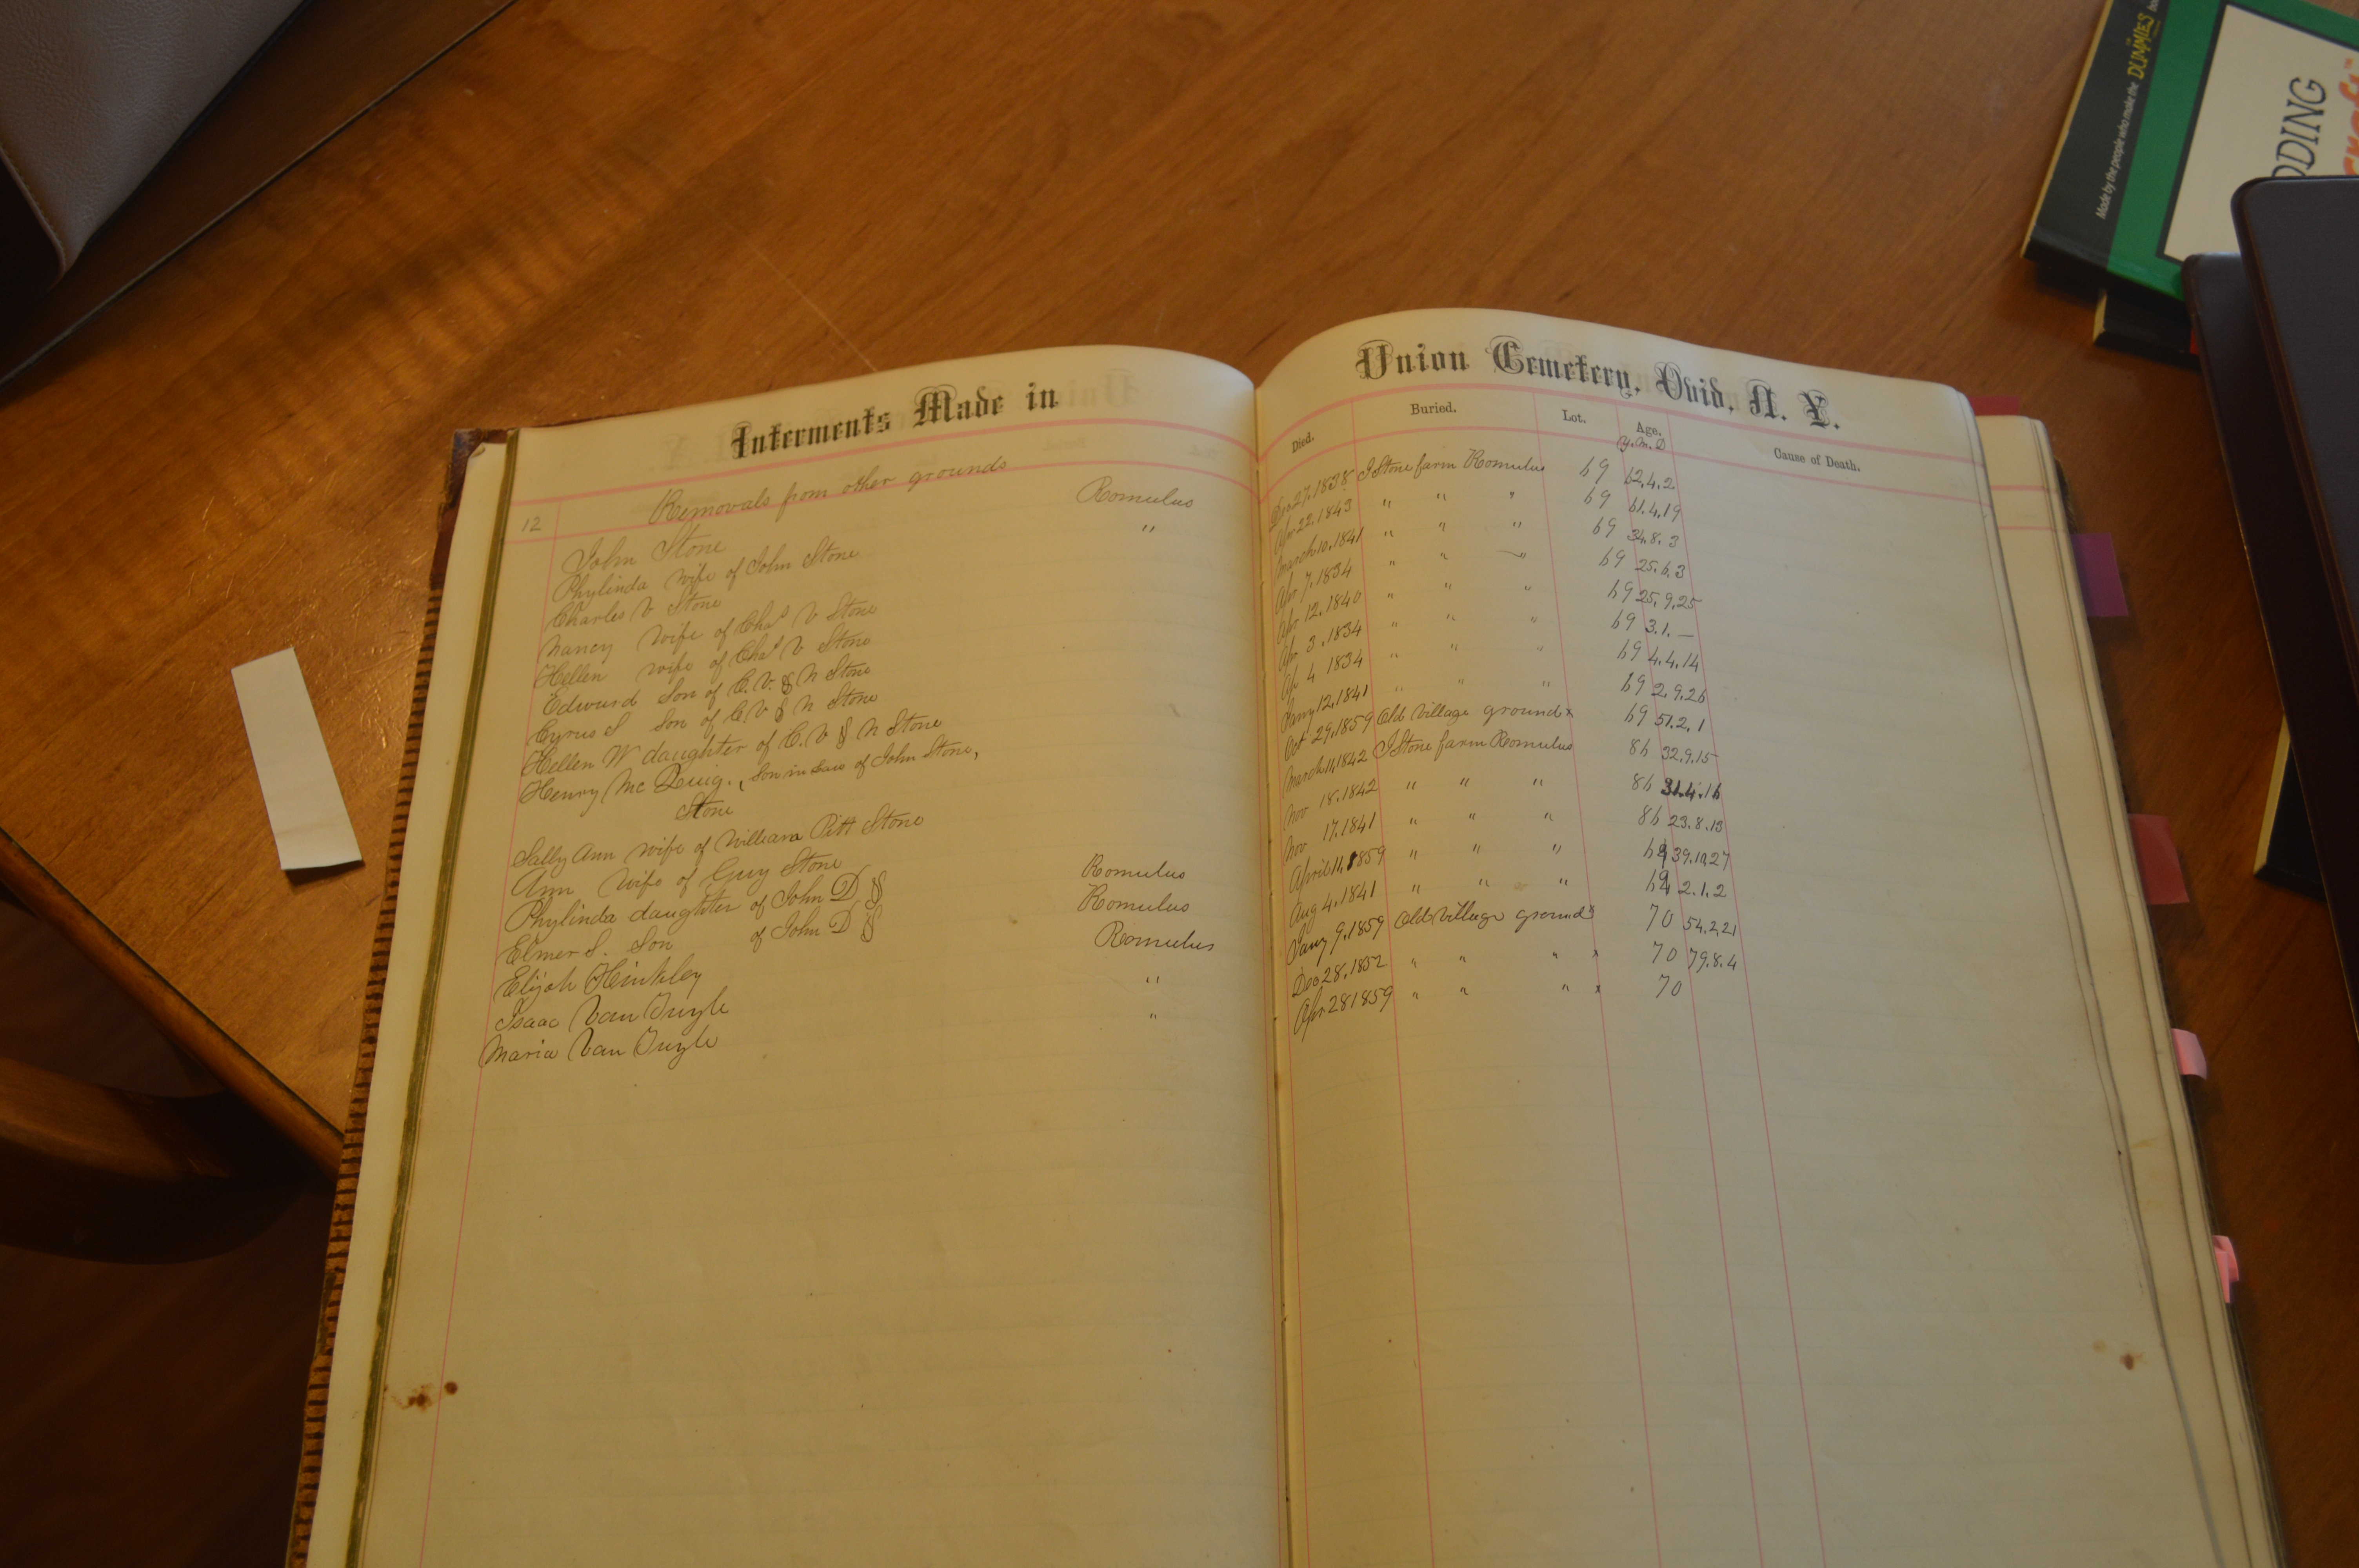 Interments Made in
12 Removals from other grounds
John Stone Romulus
Phylinda wife of John Stone "
Charles V Stone
Nancy wife of Chas V Stone
Hellen wife of Chas V Stone
Edward Son of C. V. & N Stone
Cyrus S Son of C. V & N Stone
Hellen W daughter of C. V & N Stone
Henry Mc Quig., Son in Law of John Stone,
Stone
Sally Ann wife of William Pitt Stone
Ann wife of Guy Stone
Phylinda daughter of John D § Romulus
Elmer S. Son of John D § Romulus
Elijah Hinkley Romulus
Isaac Van Tuyle "
Maria Van Tuyle "
Union Cemetery, Ovid, N. Y.
Died. Buried. Lot. Age. Cause of Death.
Y. M. D
Dec 27, 1838 J Stone farm Romulus 69 62.4.2
Apr 22, 1843 " " " 69 61.4.19
March 10, 1841 " " " 69 34.8.3
Apr 7, 1834 " " " 69 25.6.3
Apr 12, 1840 " " " 69 25.9.25
Apr 3, 1834 " " " 69 3.1.—
Ap 4 1834 " " " 69 4.4.14
Jany 12, 1841 " " " 69 2.9.26
Oct 29, 1859 Old Village ground x 69 51.2.1
March 11, 1842 J Stone farm Romulus 86 32.9.15
Nov 18, 1842 " " " 86 31.4.16
Nov 17, 1841 " " " 86 23.8.13
April 11, 1859 " " " 39.10.27
Aug 4, 1841 " " " 2.1.2
Jany 9, 1859 Old Village ground x 70 54.2.21
Dec 28, 1852 " " " x 70 79.8.4
Apr 28 1859 " " " x 70
Made by the people who make the DUMMIES
DDING